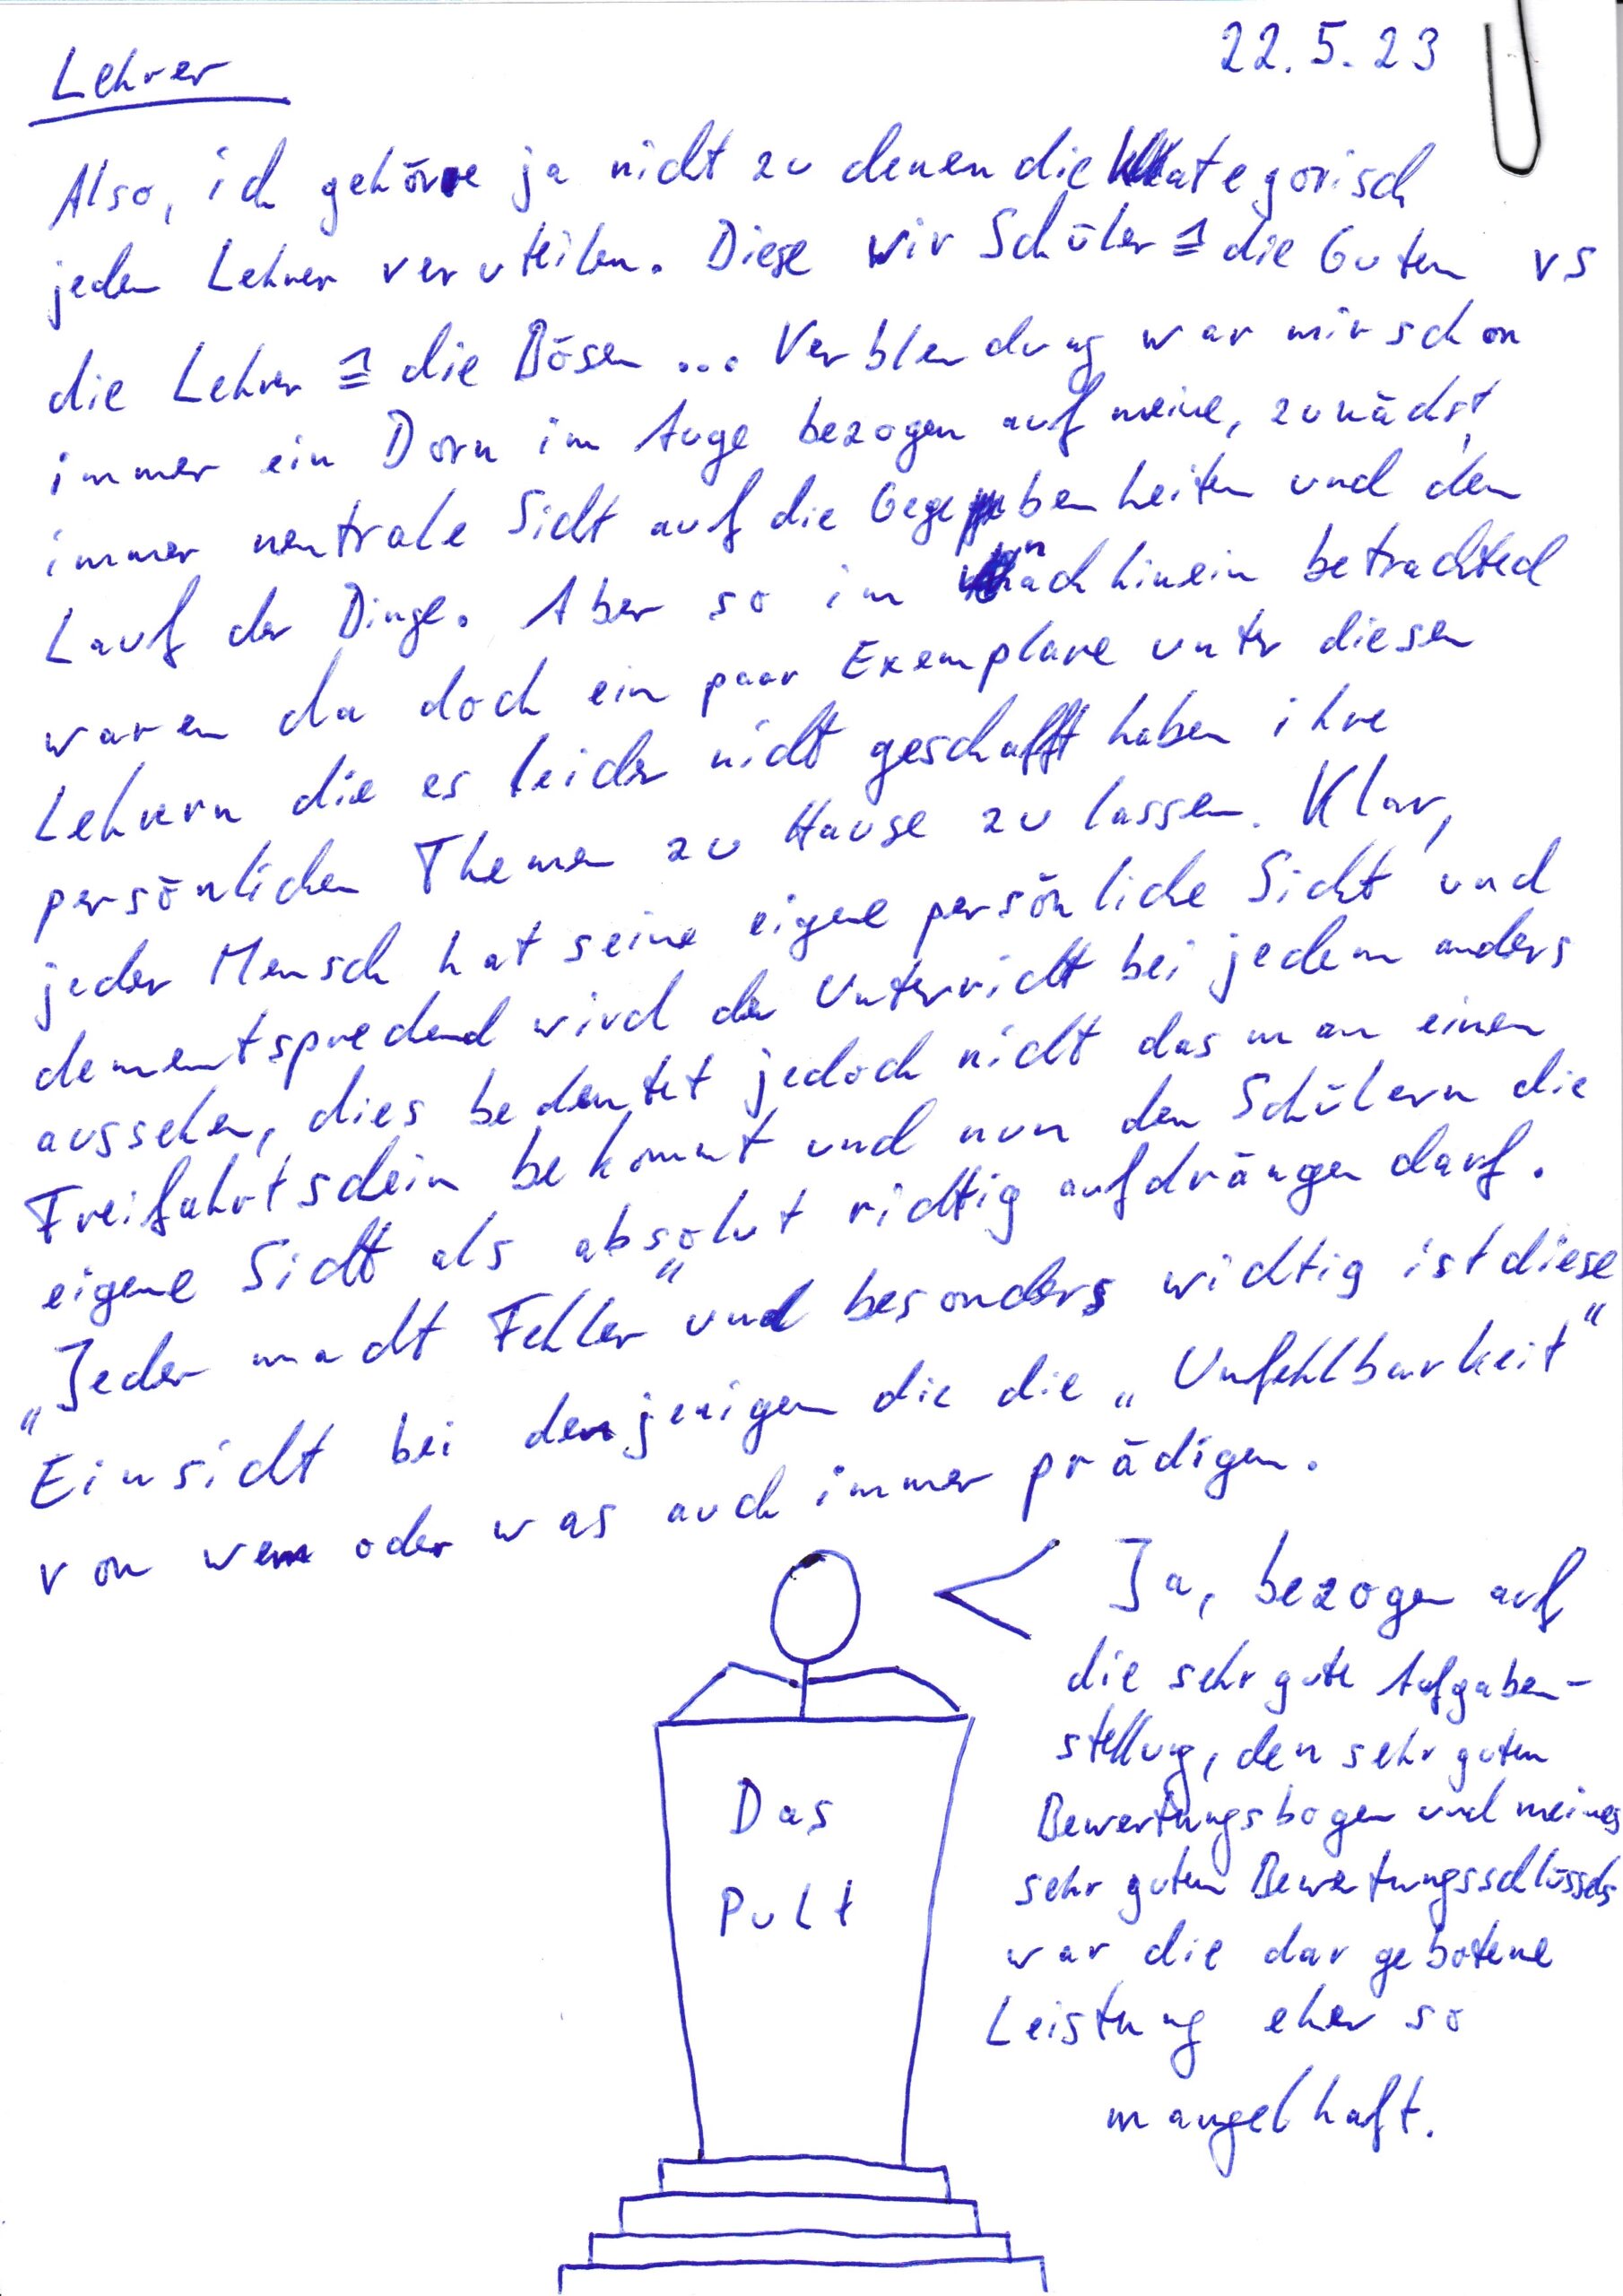 Lehrer
22.5.23
Also, ich gehöre ja nicht zu denen die kategorisch
jeden Lehrer veruteilen. Diese wir Schüler ≙ die Guten vs
die Lehrer ≙ die Bösen ... Verblendung war mir schon
immer ein Dorn im Auge bezogen auf meine, zunächst,
immer neutrale Sicht auf die Gegebenheiten und den
Lauf der Dinge. Aber so im nachhinein betrachted
waren da doch ein paar Exemplare unter diesen
Lehrern die es leider nicht geschafft haben ihre
persönlichen Themen zu Hause zu lassen. Klar,
jeder Mensch hat seine eigene persönliche Sicht und
dementsprechend wird der Unterricht bei jedem anders
aussehen, dies bedeutet jedoch nicht das man einen
Freifahrtschein bekommt und nun den Schülern die
eigene Sicht als absolut richtig aufdrängen darf.
„Jeder macht Fehler" und besonders wichtig ist diese
Einsicht bei denjenigen die die „Unfehlbarkeit"
von wem oder was auch immer prädigen.
Ja, bezogen auf
die sehr gute Aufgaben-
stellung, den sehr guten
Bewertungsbogen und meines
sehr guten Bewertungsschlüssels
war die dargebotene
Leistung eher so
mangelhaft.
Das
Pult